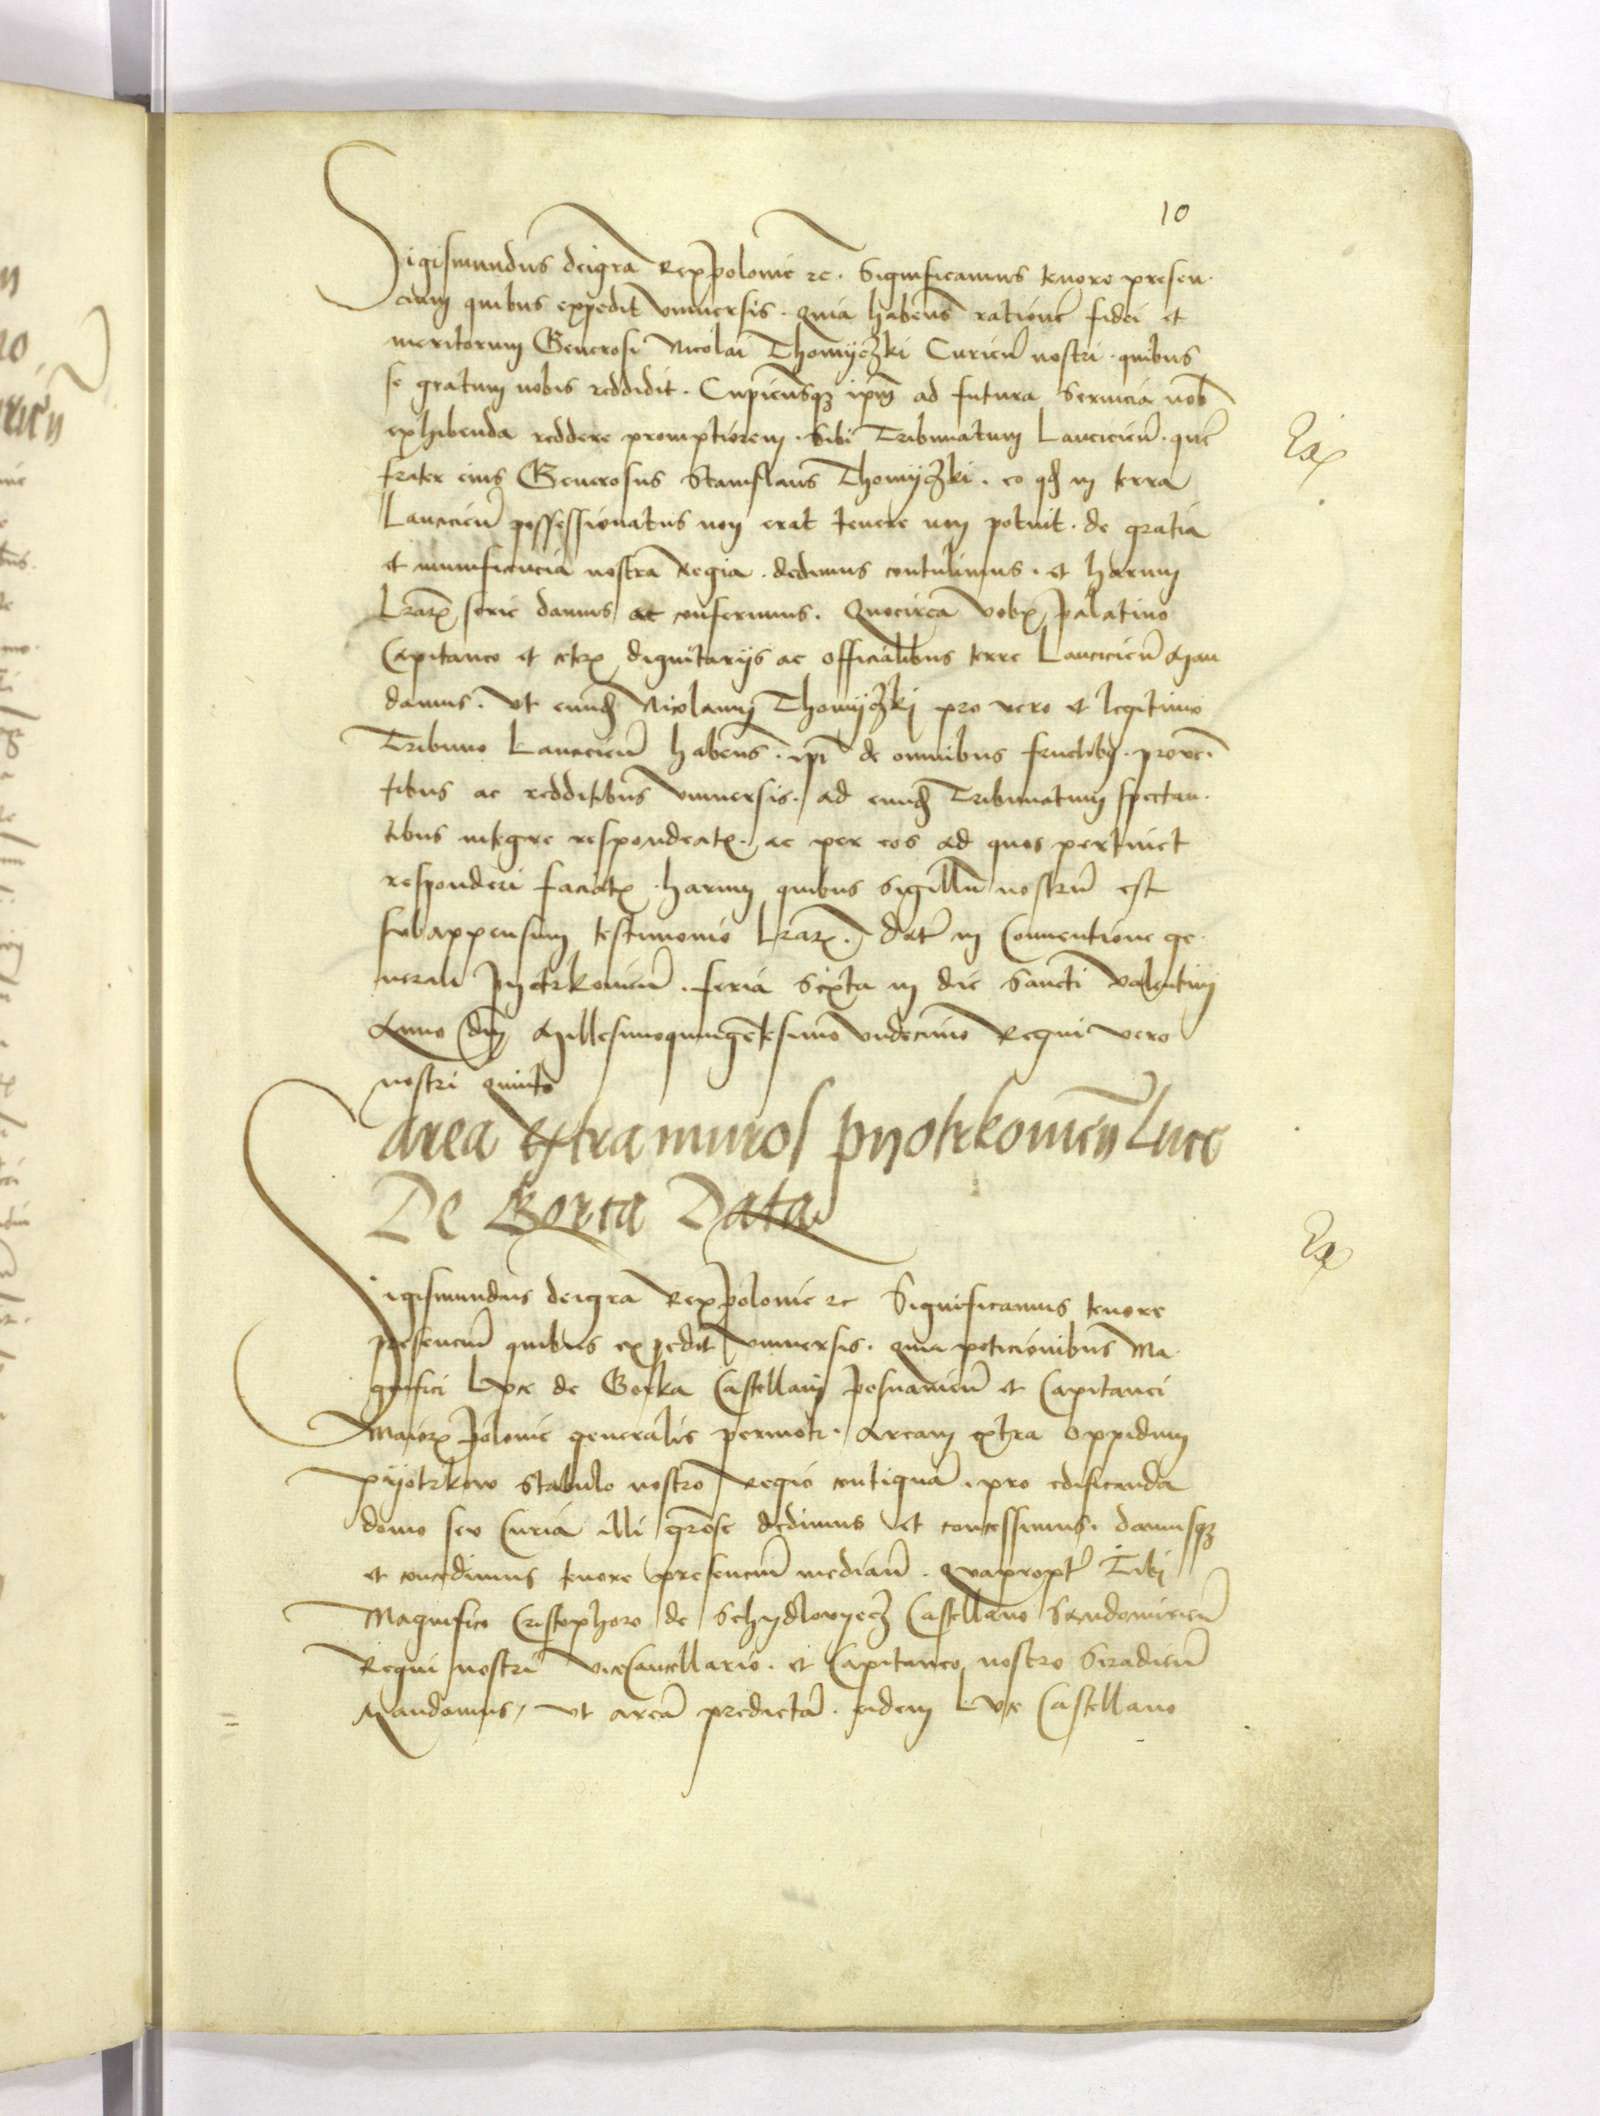 10
Sigismundus deigra Rex polonie zc. Significamus tenore presen
cium quibus expedit vniuersis. quia habens̄ rationē fidei et
meritorum Generosi Nicolai Thomyczki Curień nostri. quibus
se gratum nobis reddidit. Cupiensqz ip̄m ad futura seruicia nob̄
exhibenda reddere promptiorem. Sibi Tribunatum Lancicień. quē
frater eius Generosus Stanislaus Thomyczki. eo qd in terra
Lancicień possessionatus non erat tenere non potuit. de gratia
et munificencia nostra Regia. dedimus contulimus. et harum
Lrarz serie damus ac conferimus. Quocirca vobis palatino
Capitaneo et cetris dignitarijs ac officialibus terre Lancicień Man
damus. vt eund Nicolaum Thomijczkj pro vero et legitimo
Tribuno Lancicień habens̄. ip̄i de omnibus fructibꝫ. proue
tibus ac redditibus vniuersis. ad eund Tribunatum spectan
tibus integre respondeatꝭ. ac per eos ad quos pertinet
responderi faciatꝭ. harum quibus Sigillū nostrū est
subappensum testimonio Lrarz. Dat̄ in Conuentione ge
nerali Pyotrkouień. feria Sexta in die Sancti Valentinj
Anno dnj Millesimoquingētesimo vndecimo Regni vero
nostri quinto
Area extra muros pyotrkouień Luce
De Gorca Data
Sigismundus deigra Rex polonie zc Significamus tenore
presenciū quibus expedit vniuersis. quia peticionibus Ma
gnifici Luce de Gorka Castellanj posnanień et Capitanei
Maiorꝭ polonie generalis permoti. Aream extra oppidum
Pyotrkow Stabulo nostro Regio contiguā. pro edificanda
domo seu Curia illi grōse dedimus et concessimus. damusqz
et concedimus tenore presenciū mediań. Quapropt̄ Tibi
Magnifico Cristophoro de Schydlowyecz Castellano Sandomirień
Regni nostri vicecancellario. et Capitaneo nostro Siradień
Mandamus, vt areā predictā. eidem Luce Castellano